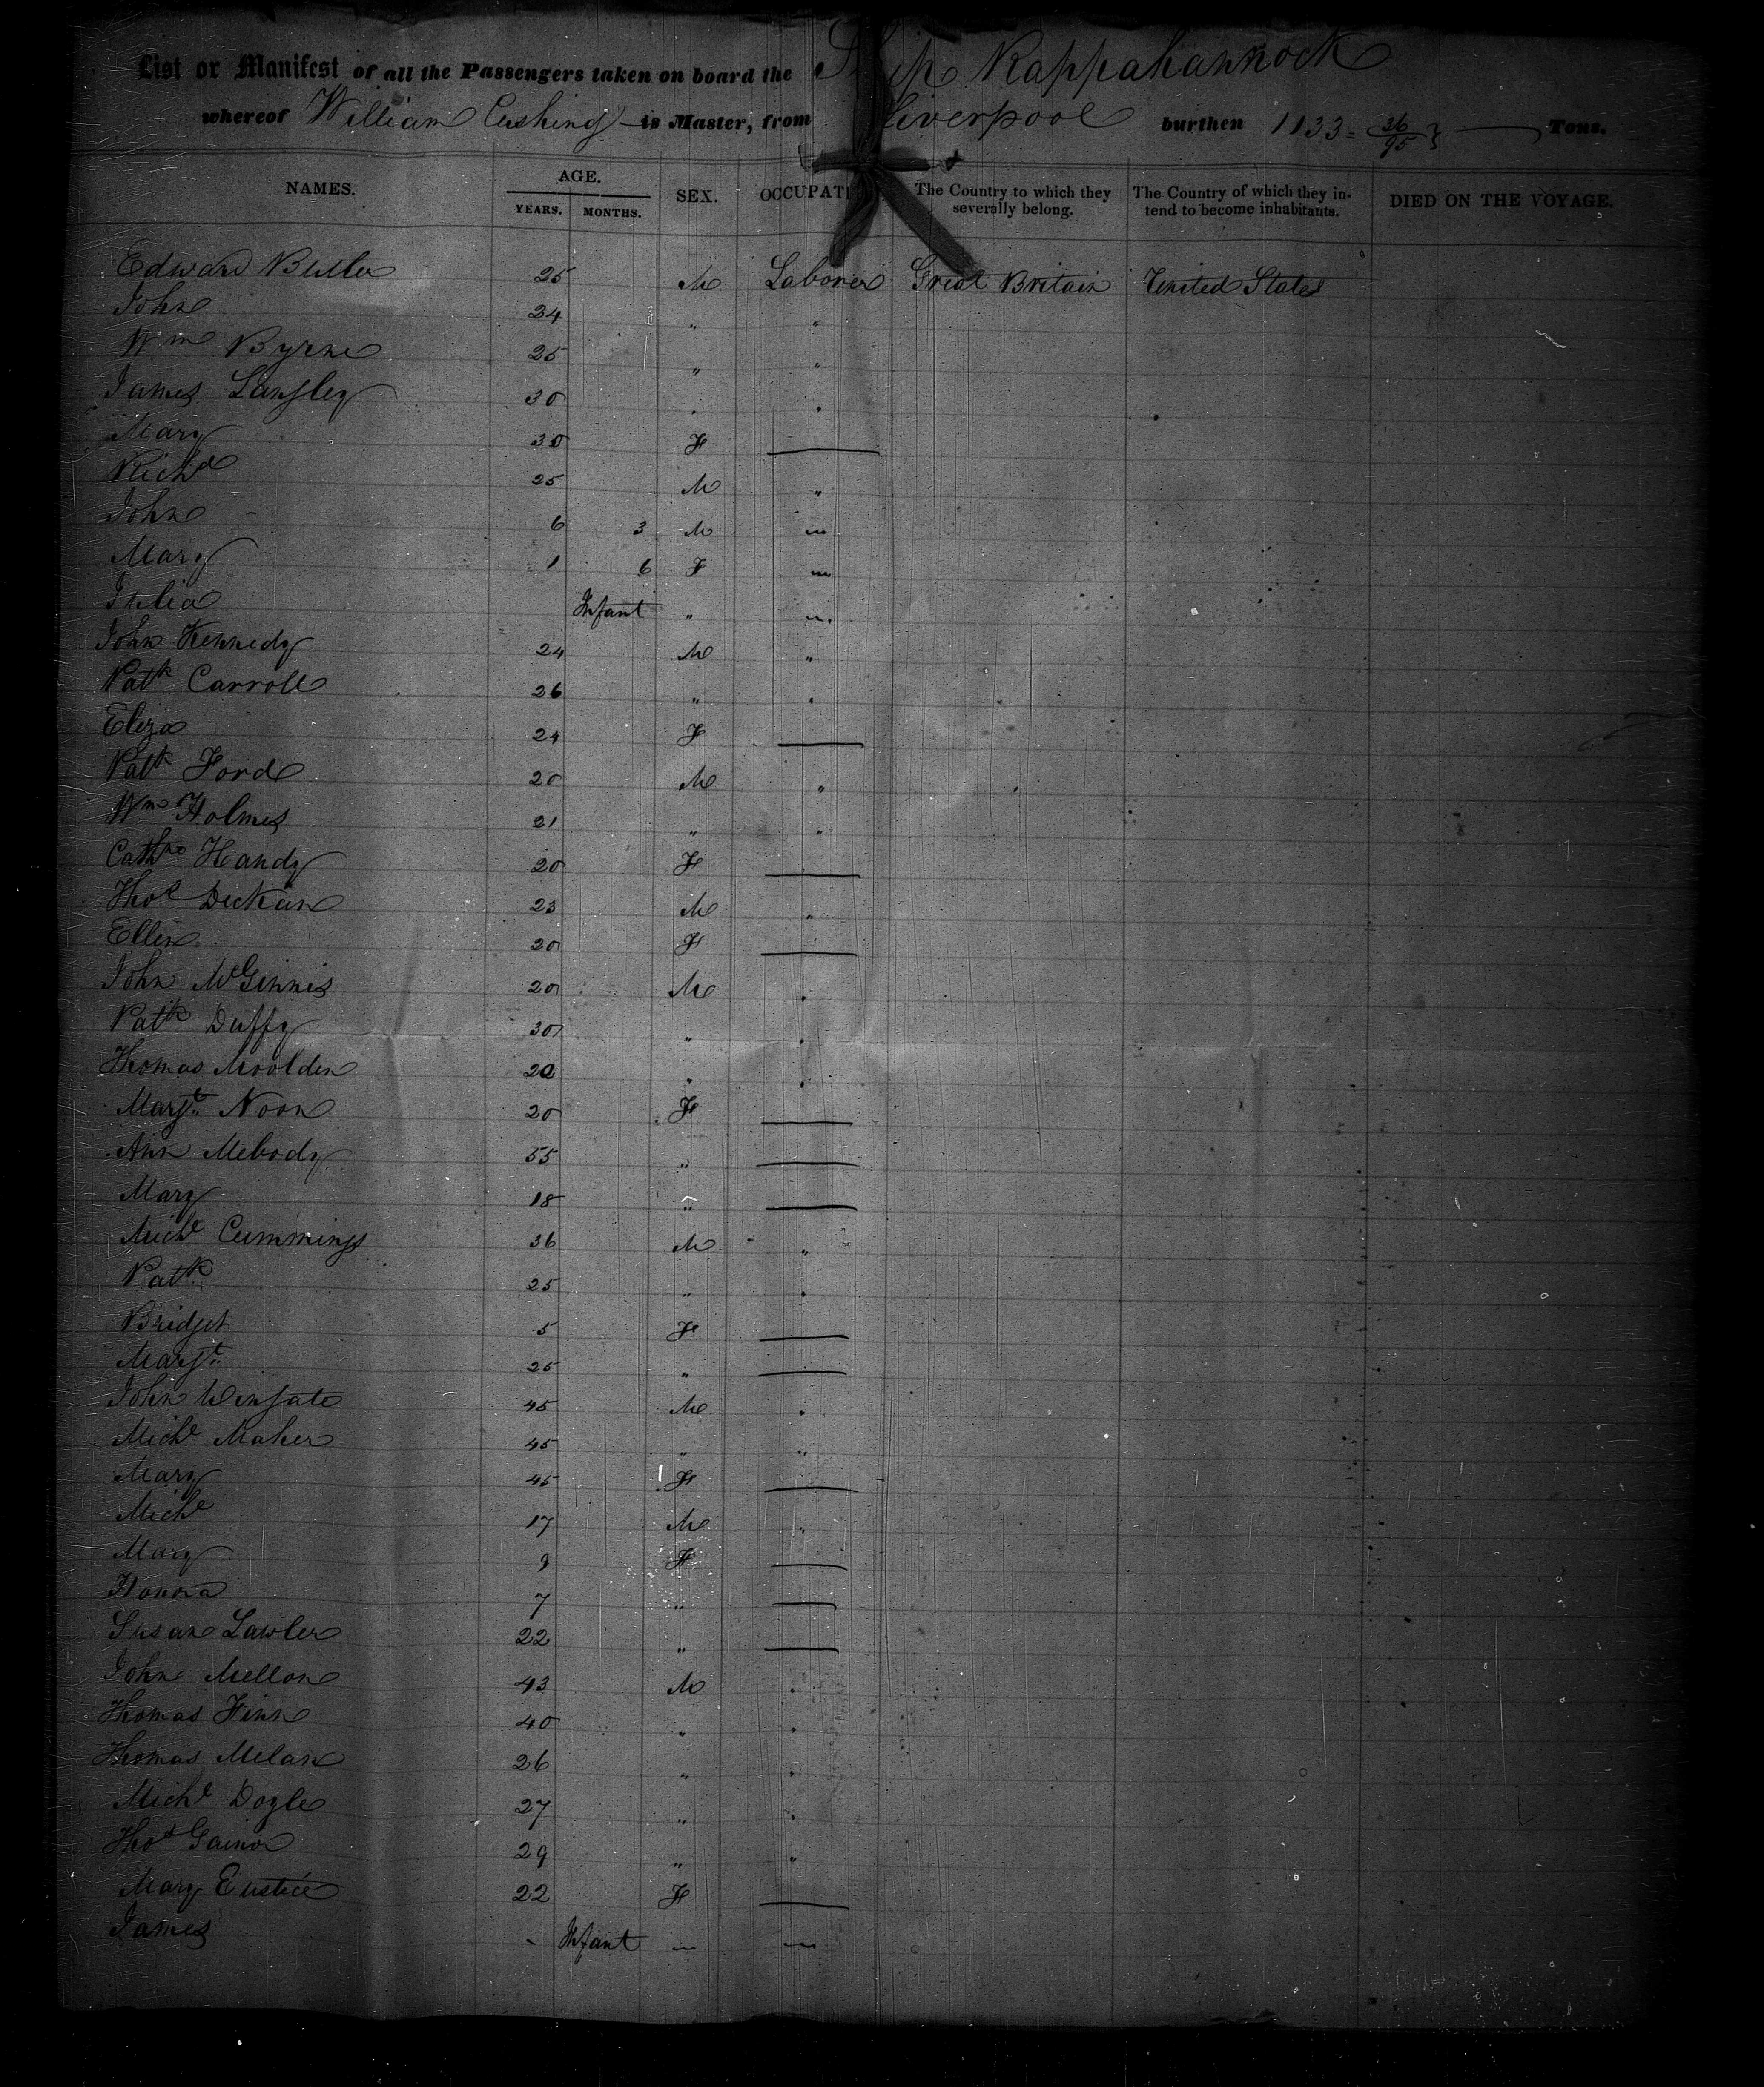 List or Manifest of all the Passengers taken on board the Ship Rappahannock
whereof William Cushing is Master, from Liverpool burthen 1133 = 36/95 } Tons.
NAMES. AGE. YEARS. MONTHS. SEX. OCCUPATI The Country to which they severally belong. The Country of which they intend to become inhabitants. DIED ON THE VOYAGE.
Edward Butler 25 M Laborer Great Britain United States
John 24 " "
Wm Byrne 25 " "
James Langley 30 " "
Mary 30 F —
Richd 25 M "
John 6 3 M "
Mary 1 6 F "
Julia Infant " "
John Kennedy 24 M "
Patk Carroll 26 " "
Eliza 24 F —
Patk Ford 20 M "
Wm Holmes 21 " "
Cathne Handy 20 F —
Thos Deckan 23 M "
Ellen 20 F —
John McGinnis 20 M "
Patk Duffy 30 " "
Thomas Moolden 20 " "
Margt Noon 20 F —
Ann Mebody 55 " —
Mary 18 " —
Michl Cummings 36 M "
Patk 25 " "
Bridget 5 F —
Margt 25 " —
John Wingate 45 M "
Michl Maher 45 " "
Mary 45 F —
Michl 17 M "
Mary 9 F —
Honora 7 " —
Susan Lawler 22 " —
John Mellon 43 M "
Thomas Finn 40 " "
Thomas Melan 26 " "
Michl Doyle 27 " "
Thos Gainor 29 " "
Mary Eustice 22 F —
James - Infant — —